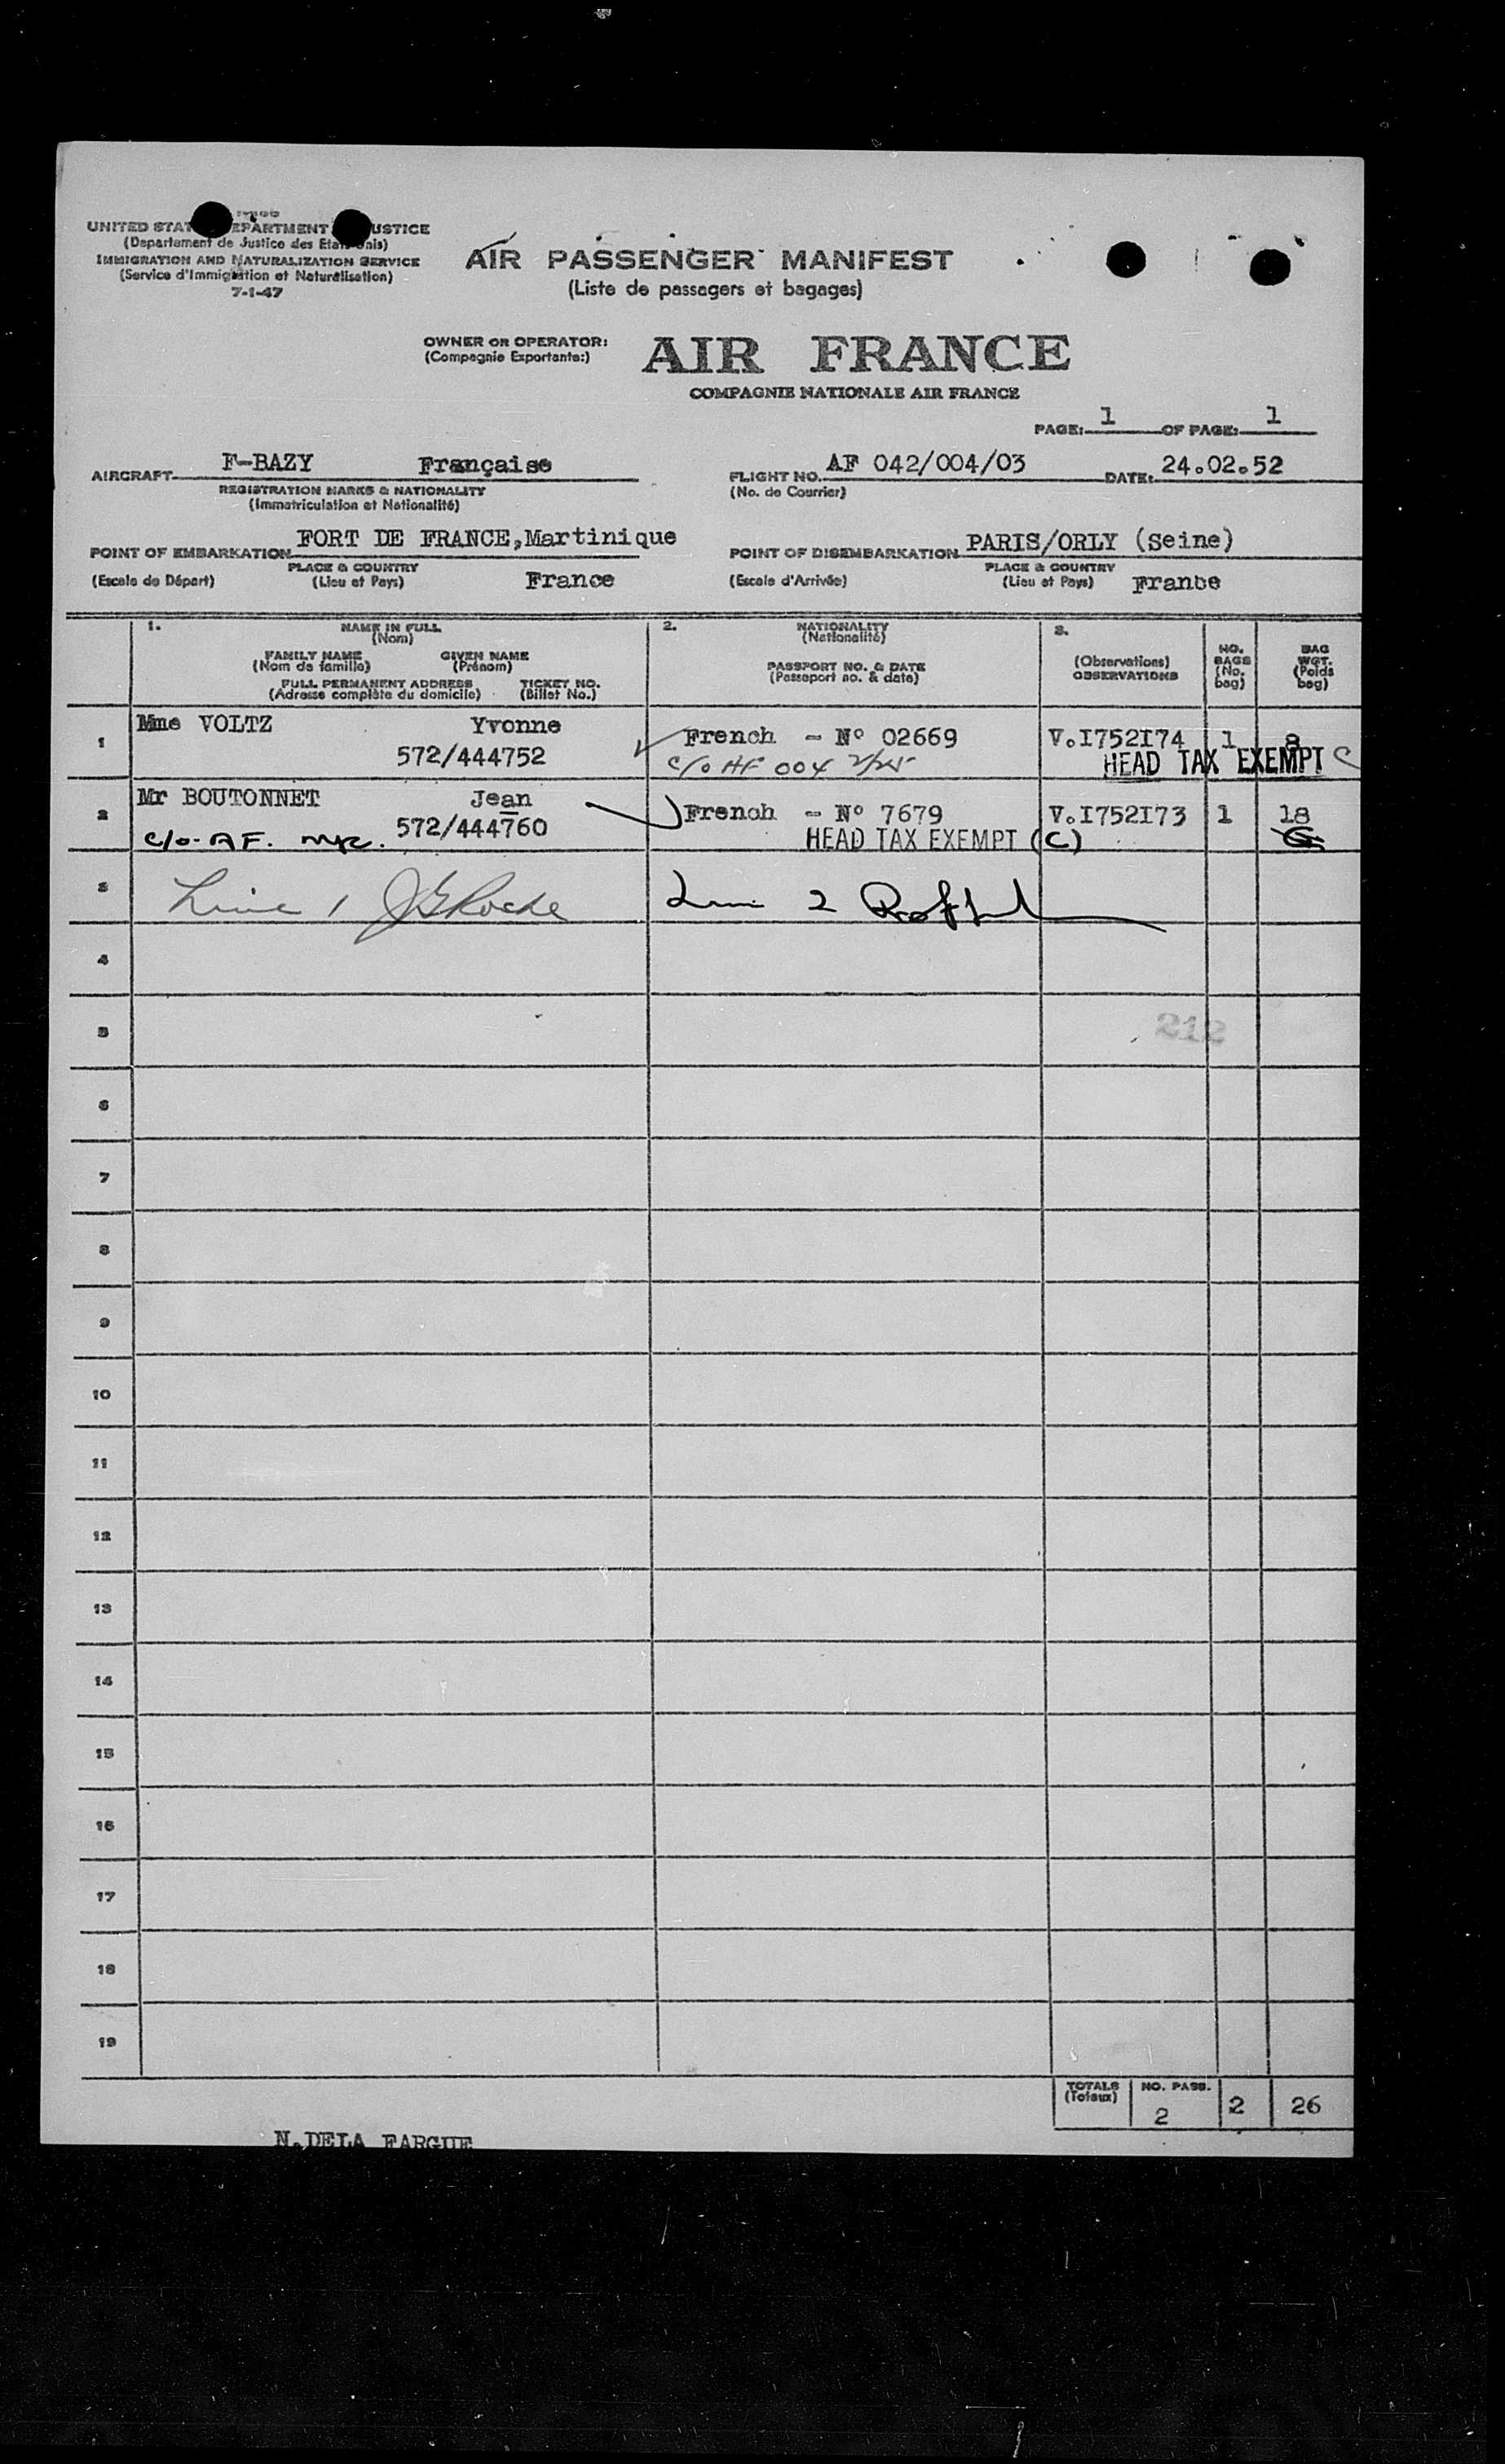 UNITED STAT EPARTMENT USTICE
(Departament de Justice des Etats nis)
IMMIGRATION AND NATURALIZATION SERVICE
(Service d'Immigration et Naturalisation)
7-1-47
AIR PASSENGER MANIFEST
(Liste de passagers et bagages)
OWNER OR OPERATOR: AIR FRANCE
(Compagnie Exportante:)
COMPAGNIE NATIONALE AIR FRANCE
PAGE: 1 OF PAGE: 1
AIRCRAFT F-BAZY Française FLIGHT NO. AF 042/004/03 DATE: 24.02.52
REGISTRATION MARKS & NATIONALITY (No. de Courrier)
(Immatriculation et Nationalité)
POINT OF EMBARKATION FORT DE FRANCE,Martinique POINT OF DISEMBARKATION PARIS/ORLY (Seine)
PLACE & COUNTRY PLACE & COUNTRY
(Escale de Départ) (Lieu et Pays) France (Escale d'Arrivée) (Lieu et Pays) France
1. NAME IN FULL 2. NATIONALITY 3.
(Nom) (Nationalité)
FAMILY NAME GIVEN NAME (Observations) NO. BAGS (No. bag) BAG WGT. (Poids bag)
(Nom de famille) (Prénom) PASSPORT NO. & DATE OBSERVATIONS
FULL PERMANENT ADDRESS TICKET NO. (Passeport no. & date)
(Adresse complète du domicile) (Billet No.)
1 Mme VOLTZ Yvonne French - Nº 02669 V.I752I74 1 8
572/444752 c/o AF 004 2/25 HEAD TAX EXEMPT C
2 Mr BOUTONNET Jean French - Nº 7679 V.I752I73 1 18
c/o AF. 572/444760 HEAD TAX EXEMPT (C)
3 Line 1 JGRoche Line 2
4
5 212
6
7
8
9
10
11
12
13
14
15
16
17
18
19
TOTALS NO. PASS. 2 26
(Totaux) 2
N.DELA FARGUE